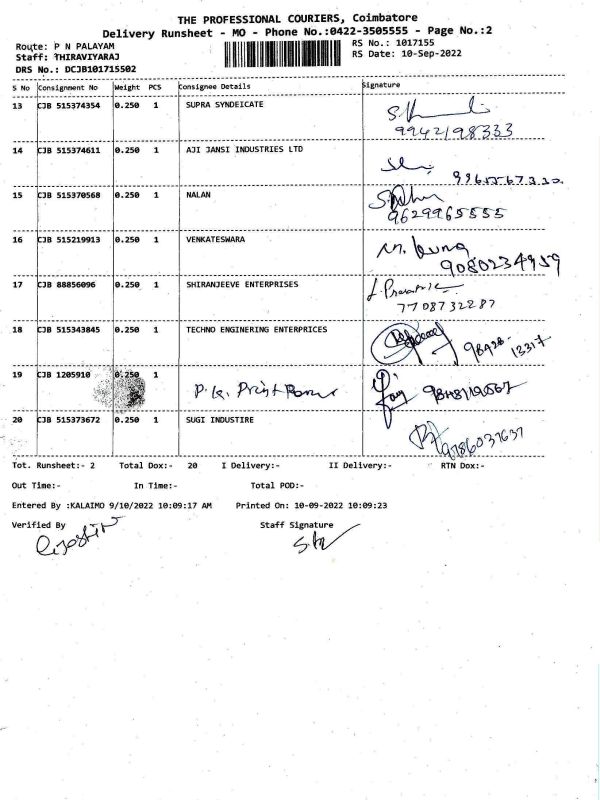 THE PROFESSIONAL COURIERS, Coimbatore
Delivery Runsheet - MO - Phone No.:0422-3505555 - Page No.:2
Route: P N PALAYAM RS No.: 1017155
Staff: THIRAVIYARAJ RS Date: 10-Sep-2022
DRS No.: DCJB101715502
S No Consignment No Weight PCS Consignee Details Signature
13 CJB 515374354 0.250 1 SUPRA SYNDEICATE
9942198333
14 CJB 515374611 0.250 1 AJI JANSI INDUSTRIES LTD
15 CJB 515370568 0.250 1 NALAN
9629965555
16 CJB 515219913 0.250 1 VENKATESWARA
9080234959
17 CJB 88856096 0.250 1 SHIRANJEEVE ENTERPRISES
7708732287
18 CJB 515343845 0.250 1 TECHNO ENGINERING ENTERPRICES
19 CJB 1205910 0.250 1 P.K. Print
20 CJB 515373672 0.250 1 SUGI INDUSTIRE
9786037637
Tot. Runsheet:- 2 Total Dox:- 20 I Delivery:- II Delivery:- RTN Dox:-
Out Time:- In Time:- Total POD:-
Entered By :KALAIMO 9/10/2022 10:09:17 AM Printed On: 10-09-2022 10:09:23
Verified By Staff Signature